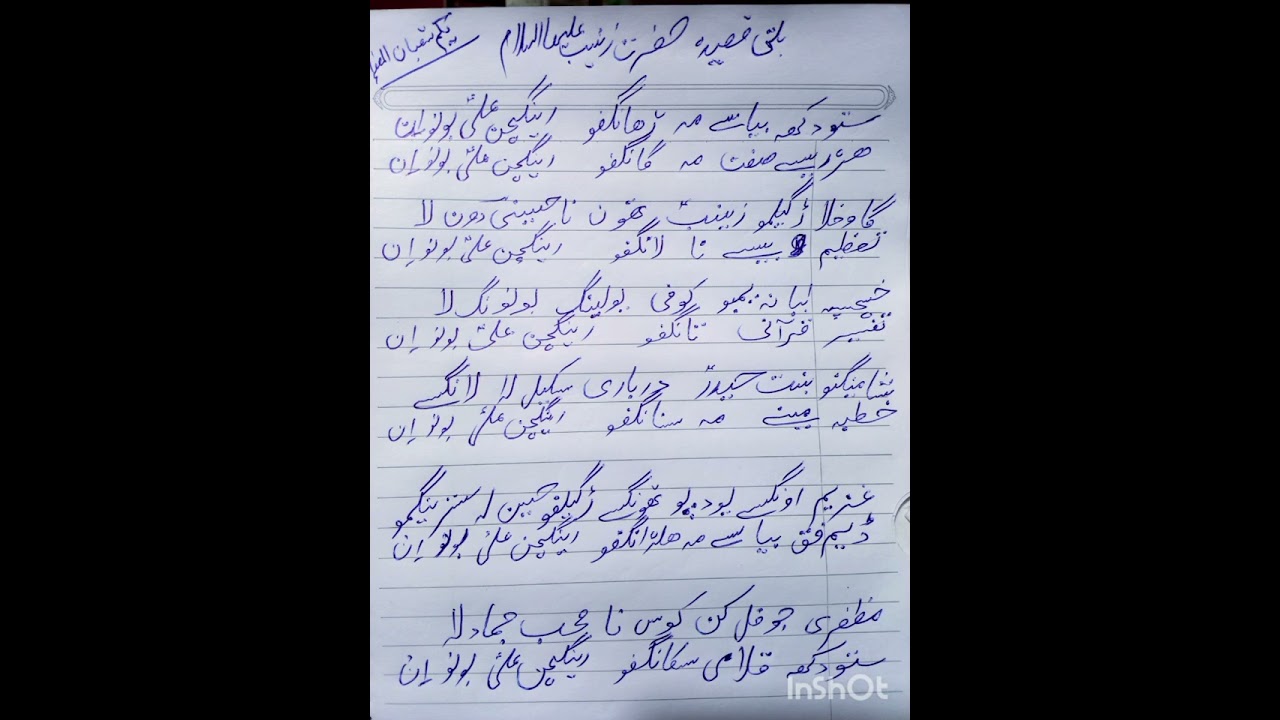 بلتی قصیدہ حضرت زینب علیہا السلام
یکم شعبان المعظم
ستودکھہ بیاسے مہ ژھانگفو رینگچن علیؑ بونو اِن
ھرڑیسے صفت مہ گانگفو رینگچن علیؑ بونو اِن
گاوخلا رگیلمو زینبؑ تھون نا حسینی دون لا
تعظیم بیسے نا لانگفو رینگچن علیؑ بونو اِن
بیانہ یمبو کوفی بولینگ بونونگ لا
تفسیر قرآنی تانگفو رینگچن علیؑ بونو اِن
شامینگنو بنت حیدرؑ درباری سکیل لا لانگسے
خطبہ مینے مہ سنانگفو رینگچن علیؑ بونو اِن
غنریم اونگسے یودپو تھونگسے رگیلفو حسین لہ سترینگمو
ڈیم فق بیاسے مہ رینگچن علیؑ بونو اِن
مظفری جوفل کن کوس نا محب جماد لا
ستودکھہ قلامی سکانگفو رینگچن علیؑ بونو اِن
InShOt